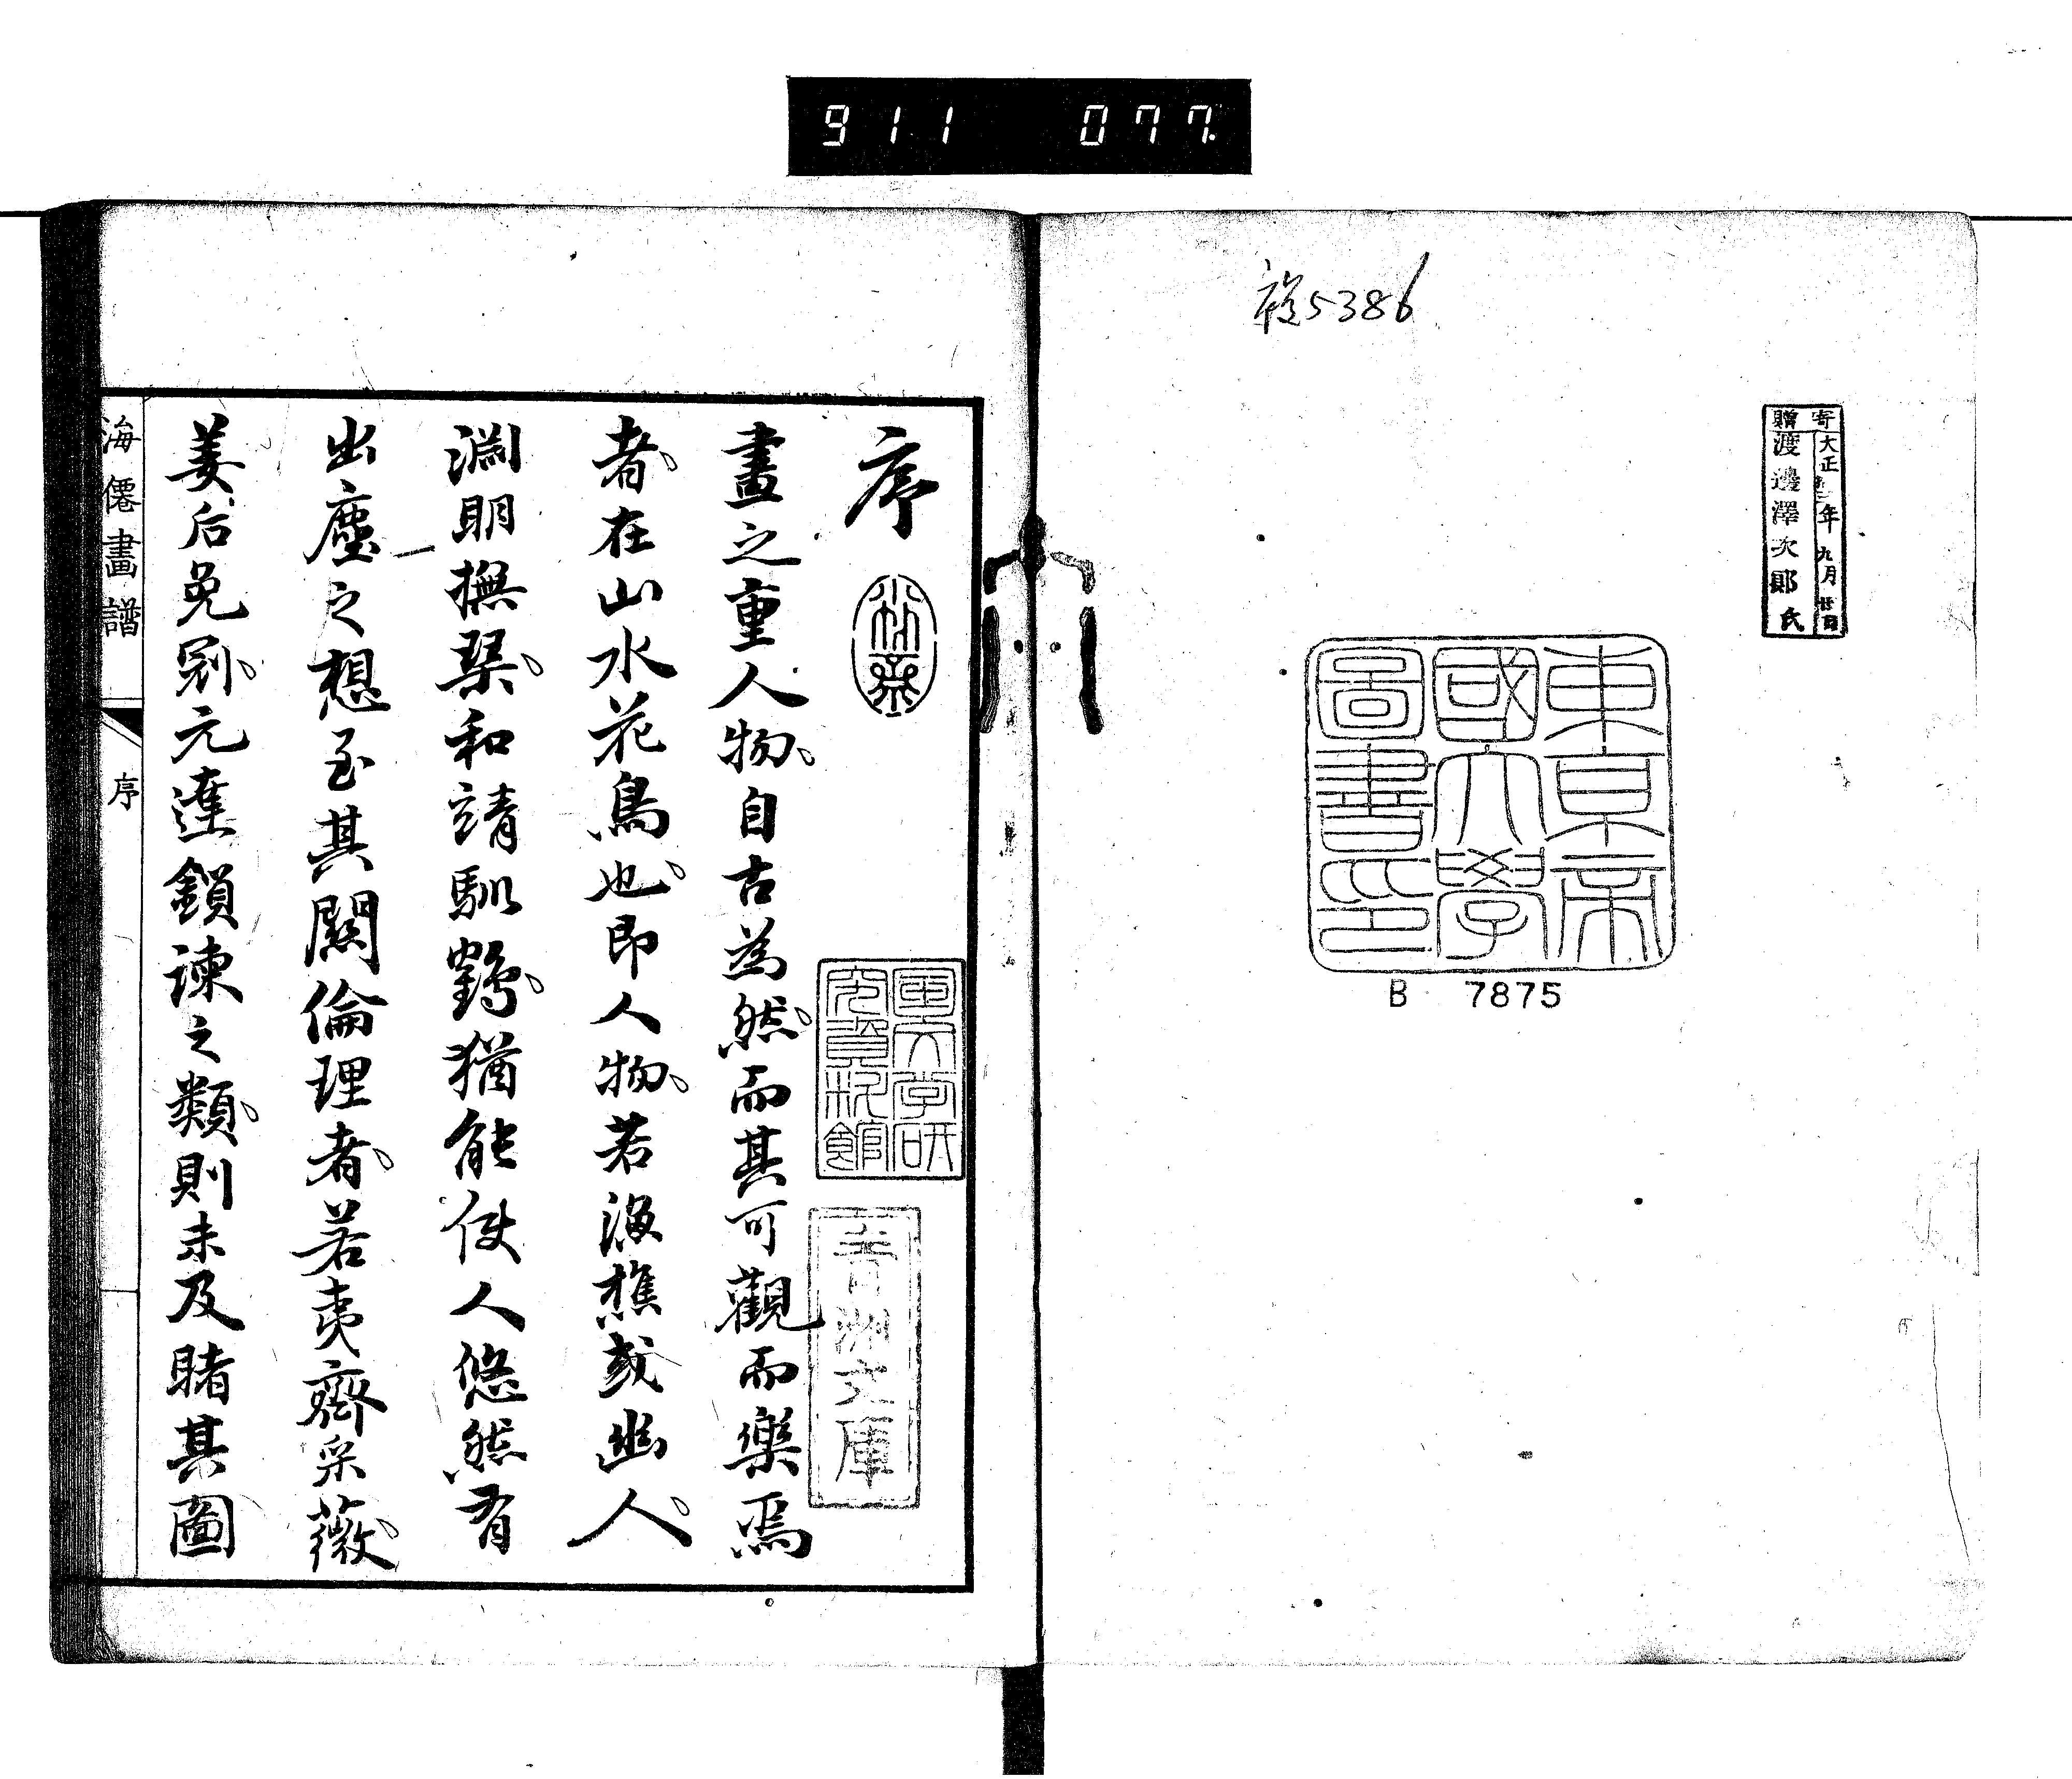 911 077
5386
寄贈
大正 年九月廿日
渡邊澤次郎氏
東京帝
國大學
圖書印
B 7875
序
畫之重人物自古為然而其可觀而樂焉
者在山水花鳥也即人物若漁樵或幽人
淵明撫琹和靖馴鶴猶能使人悠然有
出塵之想至其關倫理者若夷齊采薇
姜后免冠元達鎖諫之類則未及睹其圖
青洲文庫
海僊畫譜
序